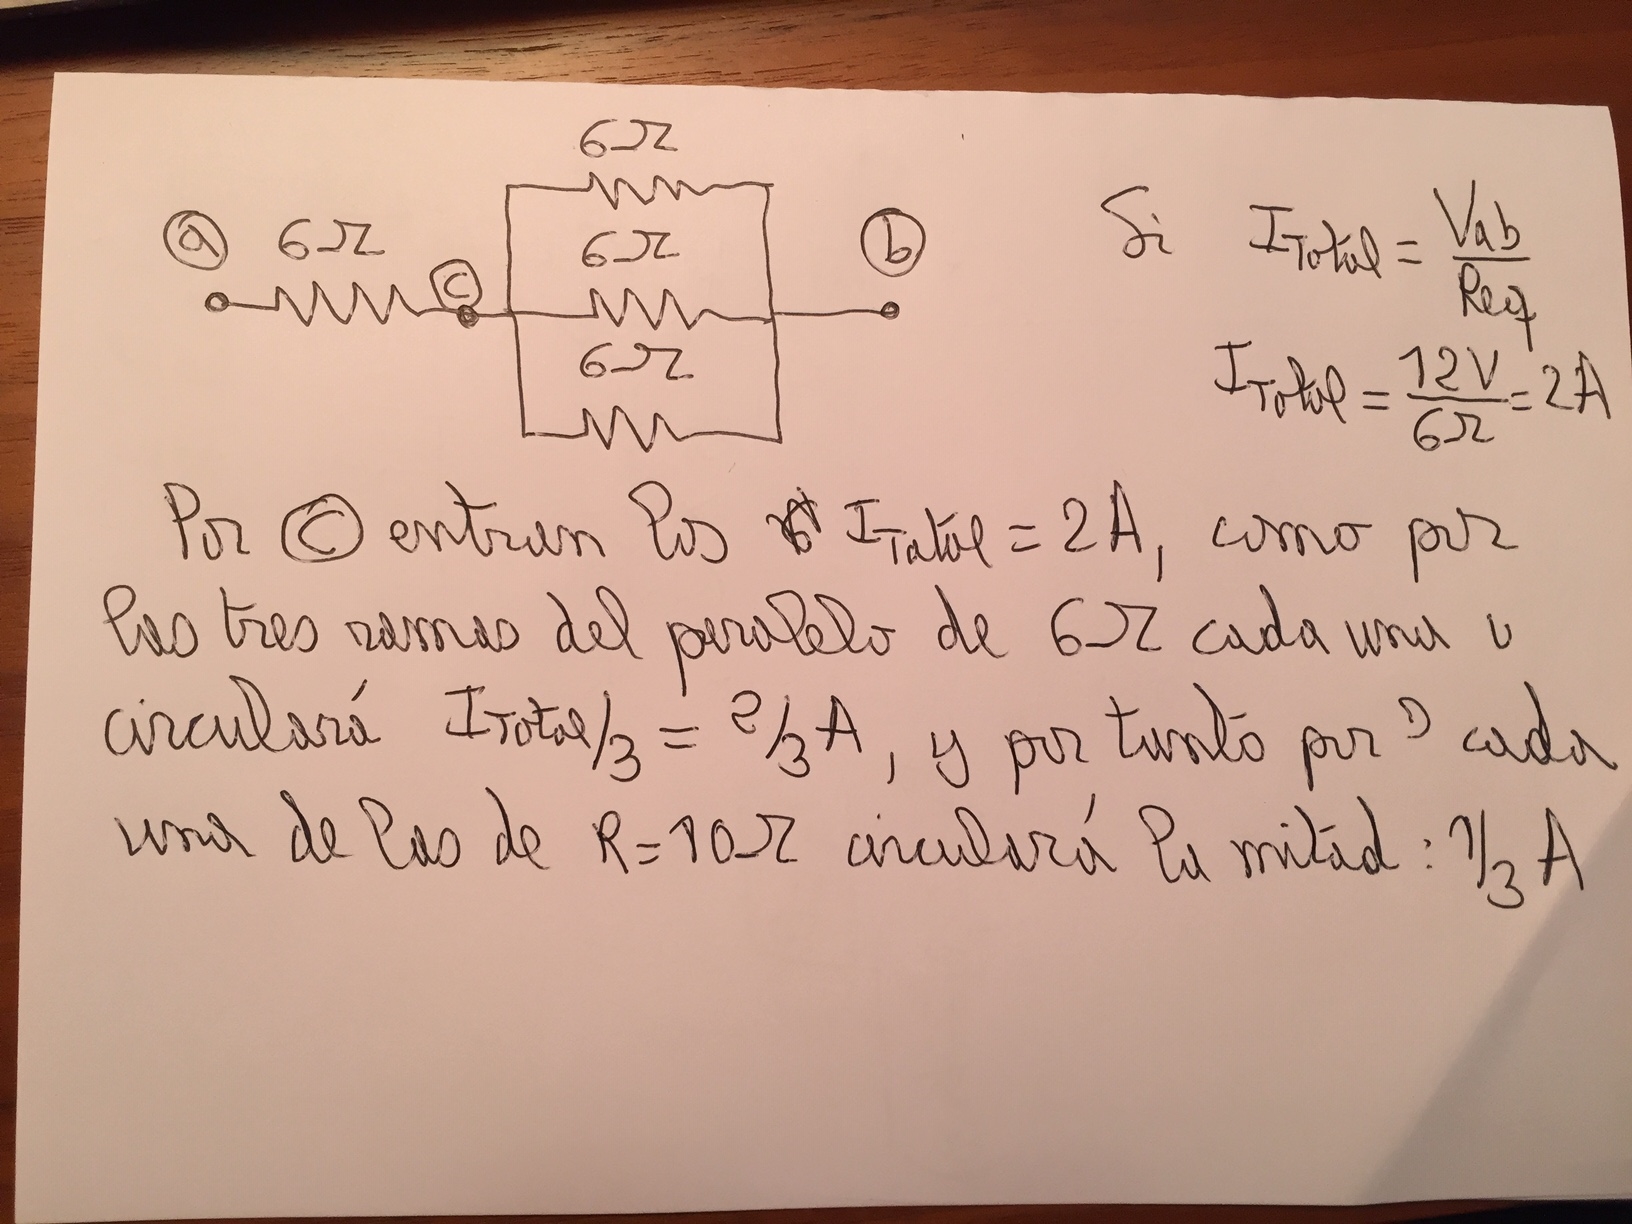 6Ω
ⓐ 6Ω ⓒ 6Ω ⓑ
6Ω
Si I_Total = Vab/Req
I_Total = 12V/6Ω = 2A
Por ⓒ entran los I_Total = 2A, como por
las tres ramas del paralelo de 6Ω cada una
circulará I_Total/3 = 2/3 A, y por tanto por cada
una de las de R=10Ω circulará la mitad: 1/3 A